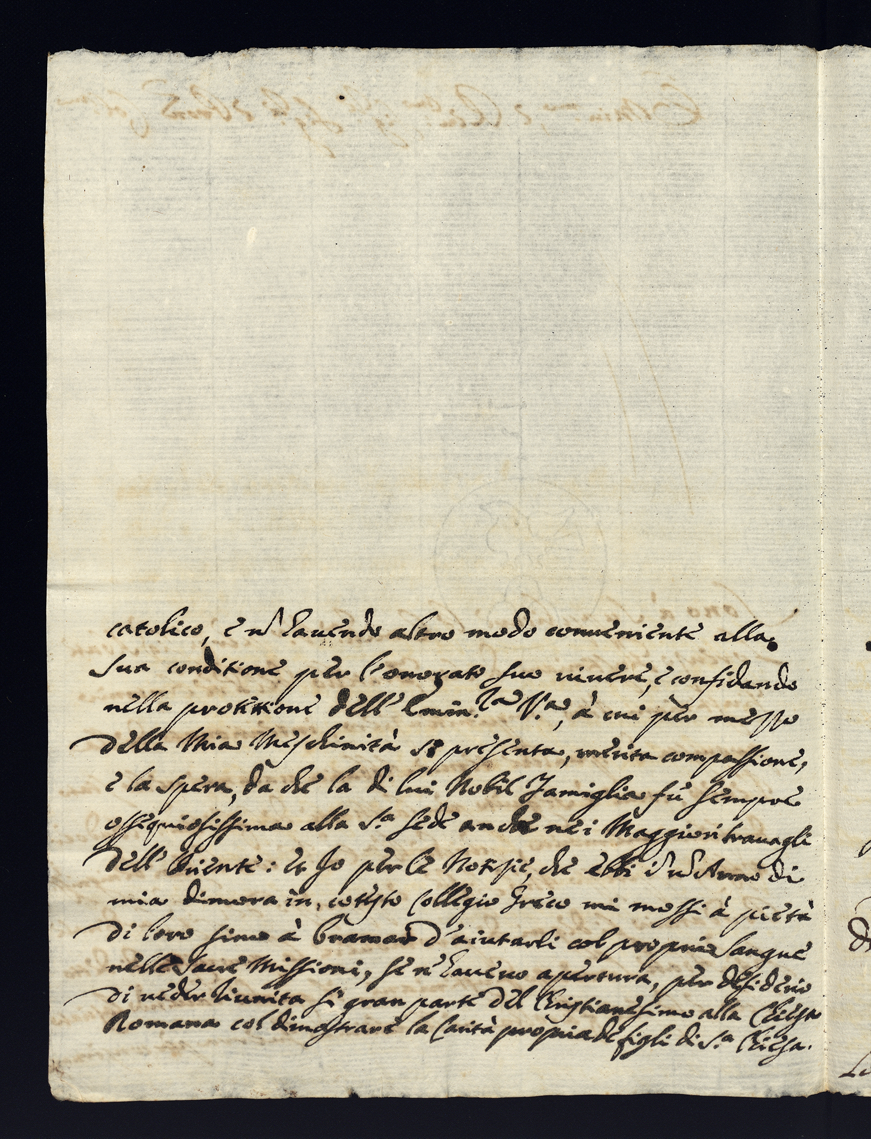 catolico, e nō hauendo altro modo conueniente alla
sua conditione per l'onorato suo uiuere, e confidando
nella protetione dell' Emin.za V.a, à cui per mezzo
della Mia Meschinità si presenta, merita compassione,
e la spera, da che la di lui Nobil Famiglia fù sempre
ossequiosissima alla S.a Sede anche ne i Maggiori trauagli
dell' Oriente: et Io per le Notizie, che ebbi Anno di
mia dimora in cotesto Collegio Greco mi mossi à pietà
di loro sino à bramar d'aiutarli col proprio Sangue
nelle Sacre Missioni, se n' haueuo apertura, per desiderio
di ueder riunita sì gran parte del Cristianesimo alla Chiesa
Romana col dimostrare la Carità propria de figli di S.a Chiesa.